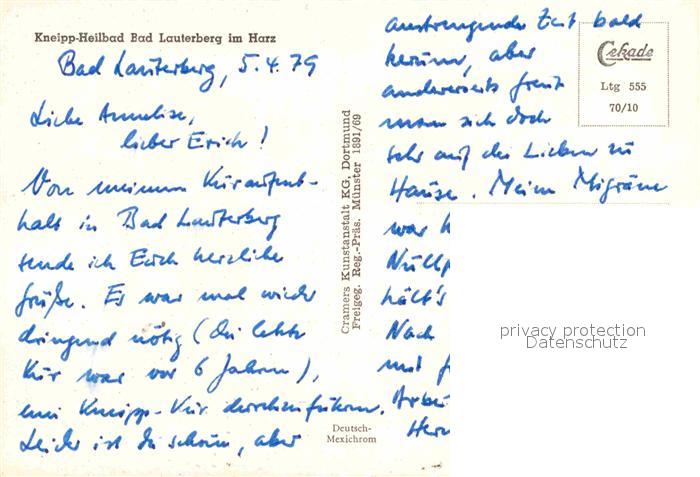 Kneipp-Heilbad Bad Lauterberg im Harz
Bad Lauterberg, 5.4.79
Liebe Annelise,
lieber Erich!
Von meinem Kuraufent-
halt in Bad Lauterberg
sende ich Euch herzliche
Grüße. Es war mal wieder
dringend nötig (die letzte
Kur war vor 6 Jahren),
eine Kneipp-Kur durchzuführen.
Leider ist die schöne, aber
anstrengende Zeit bald
herum, aber
andererseits freut
man sich doch
sehr auf die Lieben zu
Hause. Meine Migräne
war
Nullp
hält's
Nach
mit
Arbei
Herz
Cramers Kunstanstalt KG, Dortmund
Freigeg. Reg.-Präs. Münster 1891/69
Deutsch-
Mexichrom
Cekade
Ltg 555
70/10
privacy protection
Datenschutz